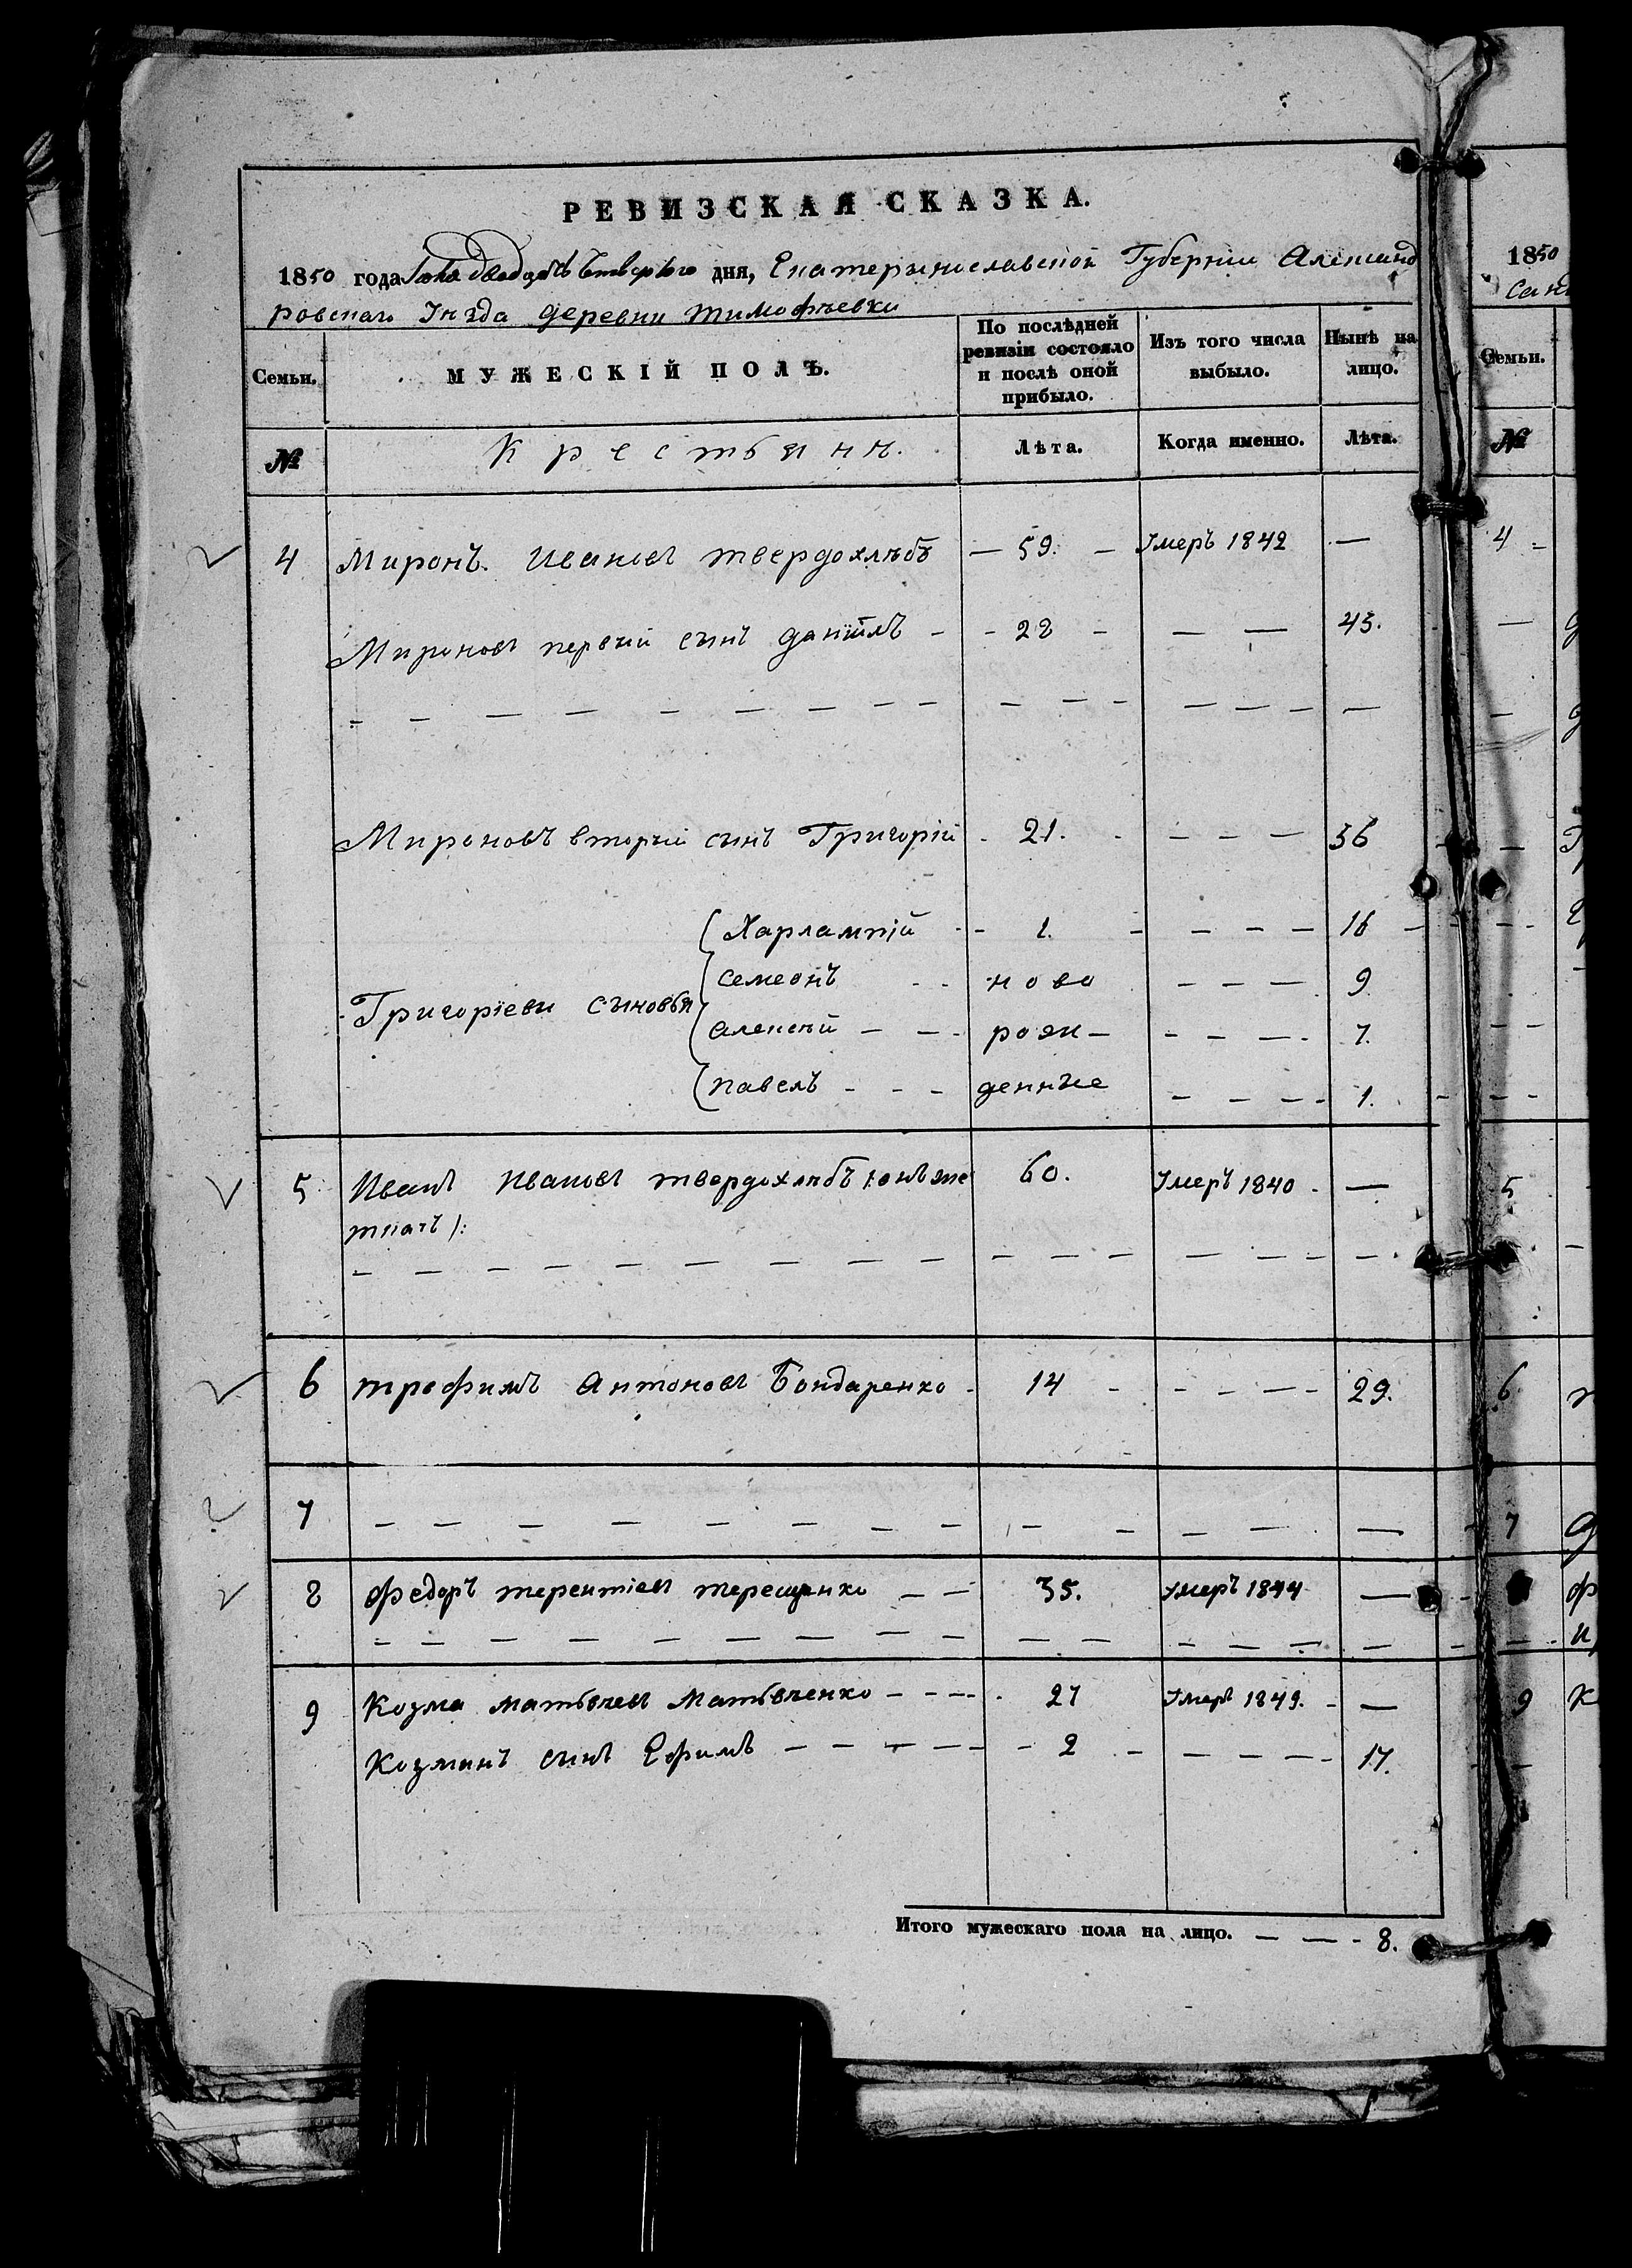 РЕВИЗСКАЯ СКАЗКА.
1850 года Іюня двадцать Четвертого дня, Екатеринославской Губерніи Александ
ровскаго Уѣзда деревни тимофѣевки
Семьи.
МУЖЕСКІЙ ПОЛЪ.
По послѣдней ревизіи состояло и послѣ оной прибыло.
Изъ того числа выбыло.
Нынѣ на лицо.
№ Крестьяни. Лѣта. Когда именно. Лѣта.
4 Миронъ Ивановъ твердохлѣбъ — 59. — Умеръ 1842 —
Мироновъ первый сынъ даніилъ - - 28 - — — 43.
Мироновъ вторый сынъ Григорій - 21. - — — — 36
Харлампій - - 1. - — — — 16
Семеонъ - - ново — — — 9
Григоріеви сыновья
Алексѣй — — рож— — — — 7.
павелъ - - — денные — — — 1.
5 Иванъ Ивановъ твердохлѣбъ /: онъ же 60. Умеръ 1840 - —
ткачъ /:
6 трофимъ Антоновъ Бондаренко - 14 - - - — - 29.
7 — — — — — — — — —
8 Федоръ терентіевъ терещенко — — 35. Умеръ 1844 —
9 Козма матвѣевъ Матвѣенко - - - 27 Умеръ 1849. - —
Козминъ сынъ Ефимъ — — — — - 2 - — — — 17.
Итого мужескаго пола на лицо. — — - 8.
1850
санд
Семьи.
№
4
5
6
7
9